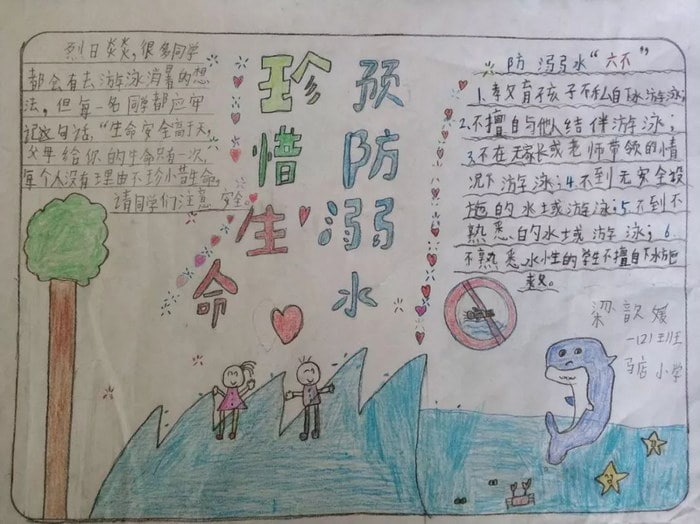 烈日炎炎,很多同学
都会有去游泳消暑的想
法,但每一名同学都应牢
记这句话,“生命安全高于天,
父母给你的生命只有一次,
每个人没有理由不珍小惜生命,
请同学们注意安全。
珍惜生命
预防溺水
防溺水“六不”
1.教育孩子不私自下水游泳;
2.不擅自与他人结伴游泳;
3.不在无家长或老师带领的情
况下游泳;4.不到无安全设
施的水域游泳;5.不到不
熟悉的水域游泳;6.
不熟悉水性的学生不擅自下水施
救。
梁歆媛
一(2)班
店小学